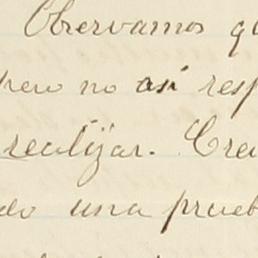 Observamos q
pero no así resp
realizar. Cree
do una prueb